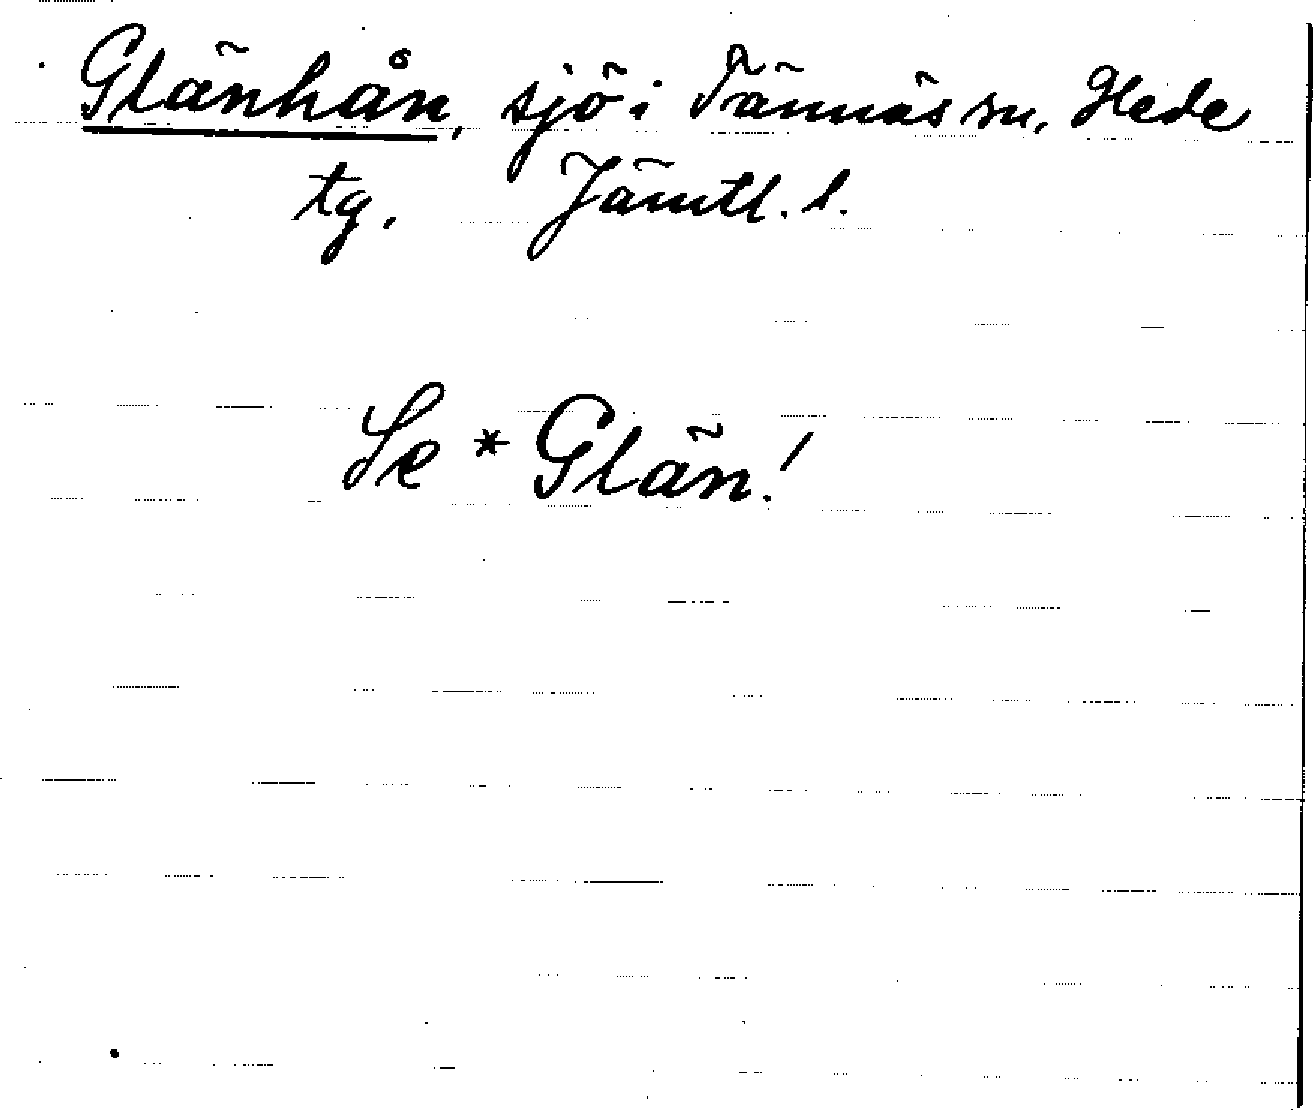 Glänhån, sjö i Tännäs sn, Hede
tg. Jämtl. l.
Se * Glän!